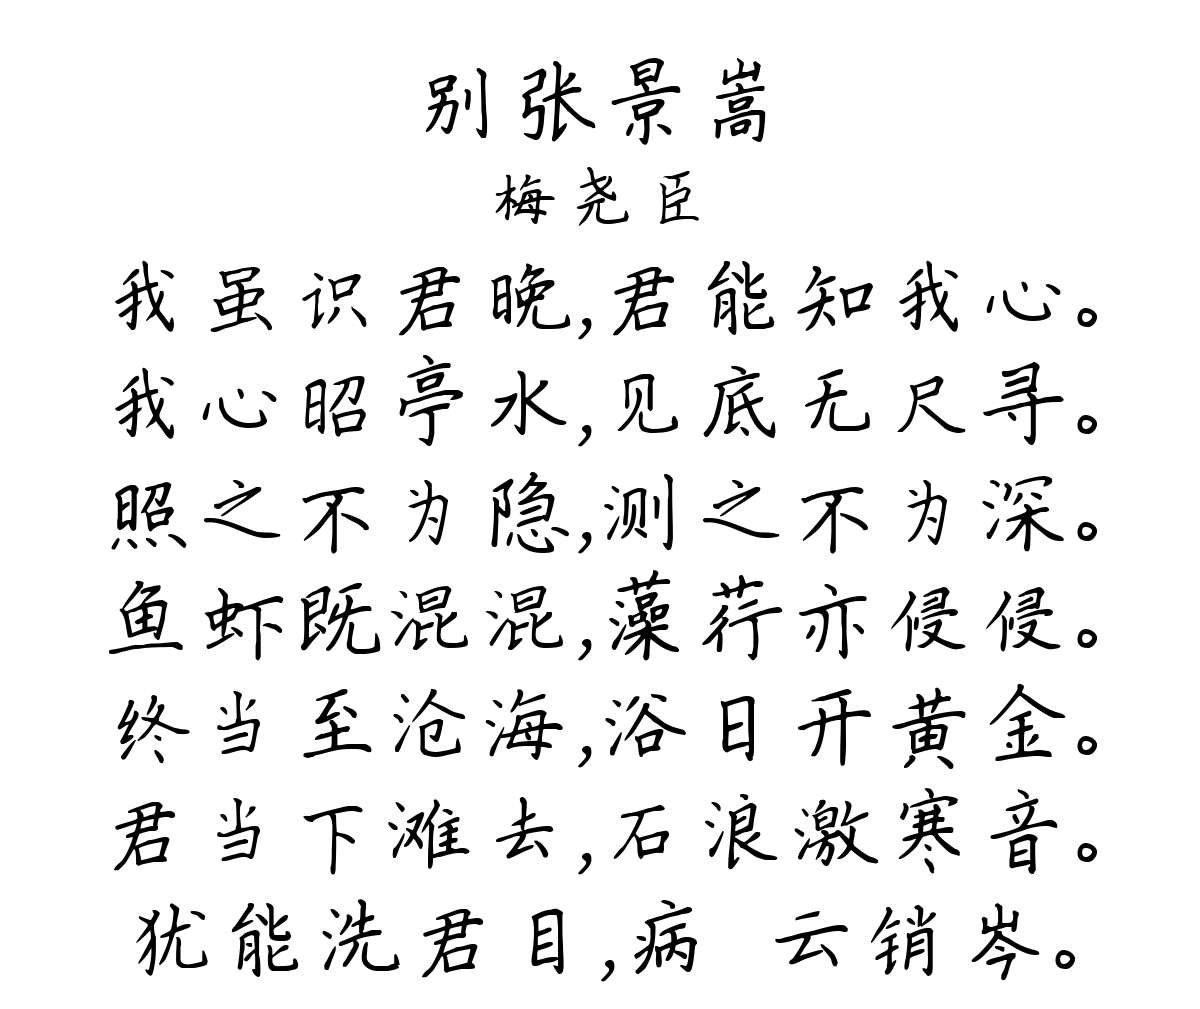 别张景嵩
梅尧臣
我虽识君晚,君能知我心。
我心昭亭水,见底无尺寻。
照之不为隐,测之不为深。
鱼虾既混混,藻荇亦侵侵。
终当至沧海,浴日开黄金。
君当下滩去,石浪激寒音。
犹能洗君目,病 云销岑。